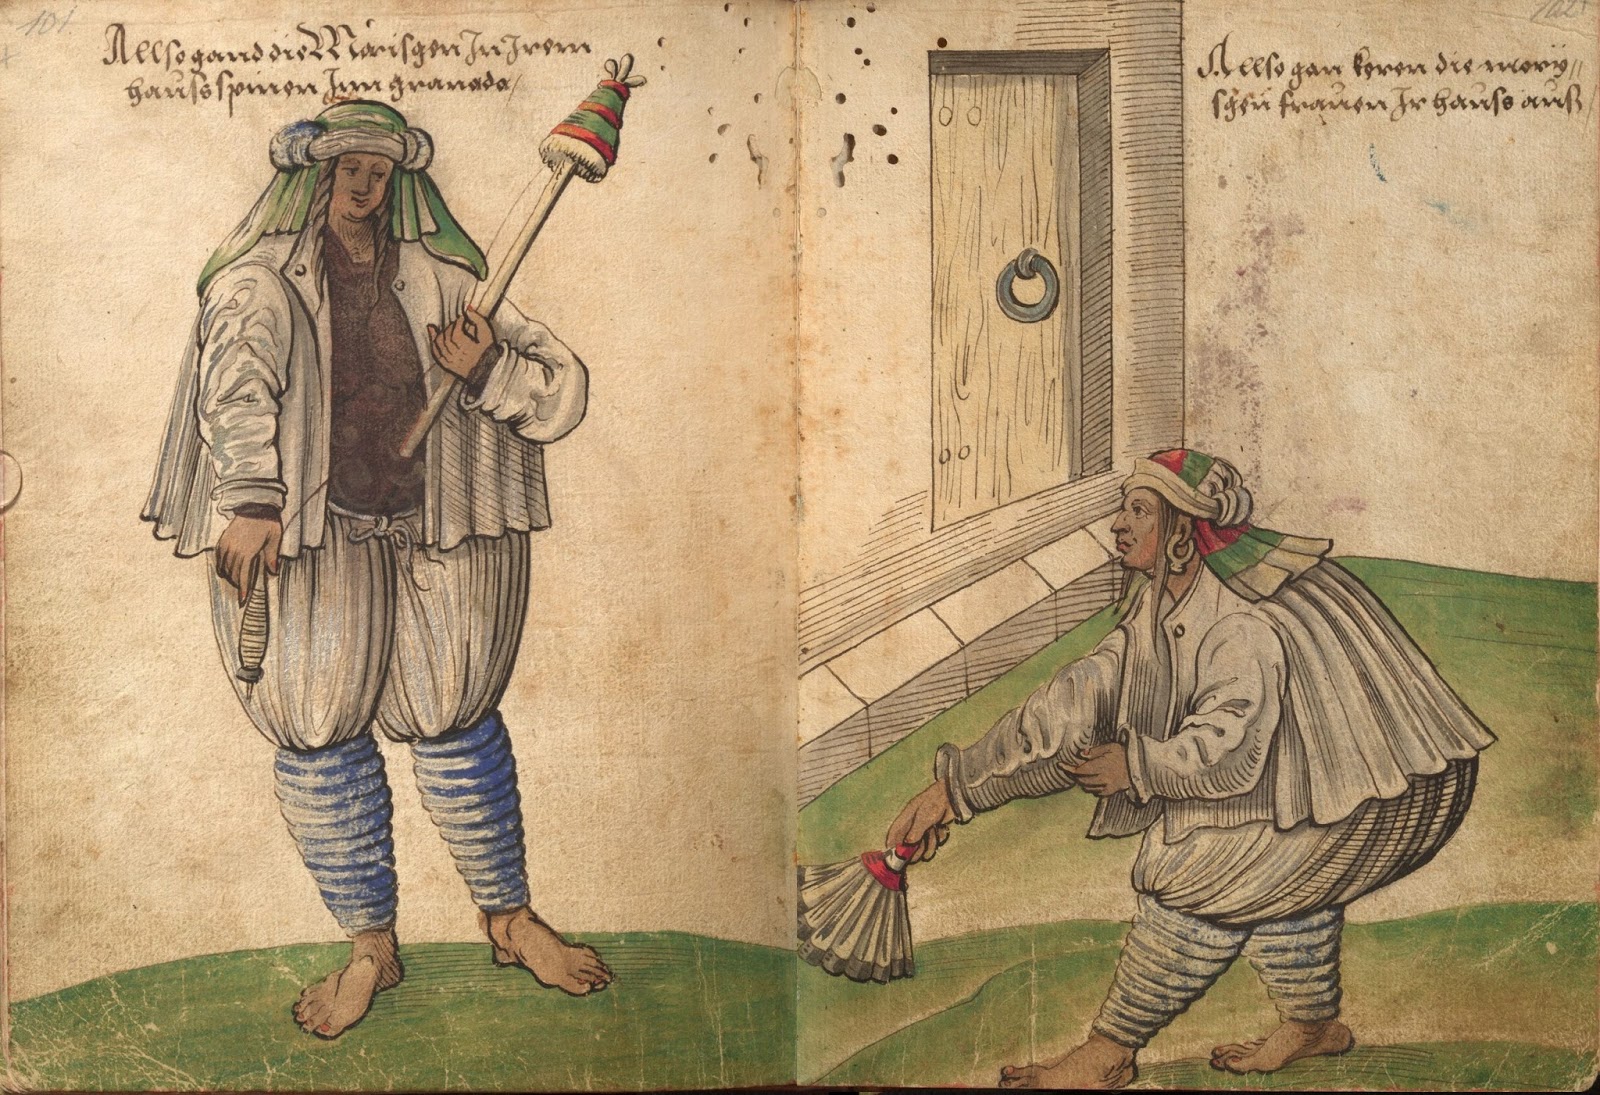 101.
Allso gand die Mörisgen In Irem
hauss spinen Inn granada
102.
Allso gan keren die mory//
sgen frauen Ir hauss auss